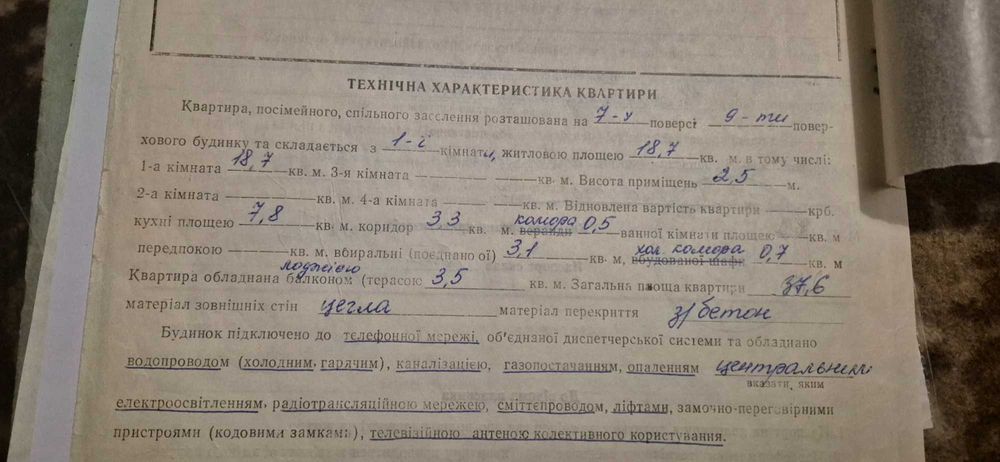 ТЕХНІЧНА ХАРАКТЕРИСТИКА КВАРТИРИ
Квартира, посімейного, спільного заселення розташована на 7-у поверсі 9-ти повер-
хового будинку та складається з 1-ї кімнати, житловою площею 18,7 кв. м. в тому числі:
1-а кімната 18,7 кв. м. 3-я кімната кв. м. Висота приміщень 2,5 м.
2-а кімната кв. м. 4-а кімната кв. м. Відновлена вартість квартири крб.
кухні площею 7,8 кв. м. коридор 3,3 кв. м. веранди комора 0,5 ванної кімнати площею кв. м
передпокою кв. м, вбиральні (поєднаної) 3,1 кв. м, вбудованої шафи хол. комора 0,7 кв. м
Квартира обладнана балконом лоджією (терасою 3,5 кв. м. Загальна площа квартири 37,6
матеріал зовнішніх стін цегла матеріал перекриття з/бетон
Будинок підключено до телефонної мережі, об'єднаної диспетчерської системи та обладнано
водопроводом (холодним, гарячим), каналізацією, газопостачанням, опаленням центральним
вказати, яким
електроосвітленням, радіотрансляційною мережею, сміттєпроводом, ліфтами, замочно-переговірними
пристроями (кодовими замками), телевізійною антеною колективного користування.